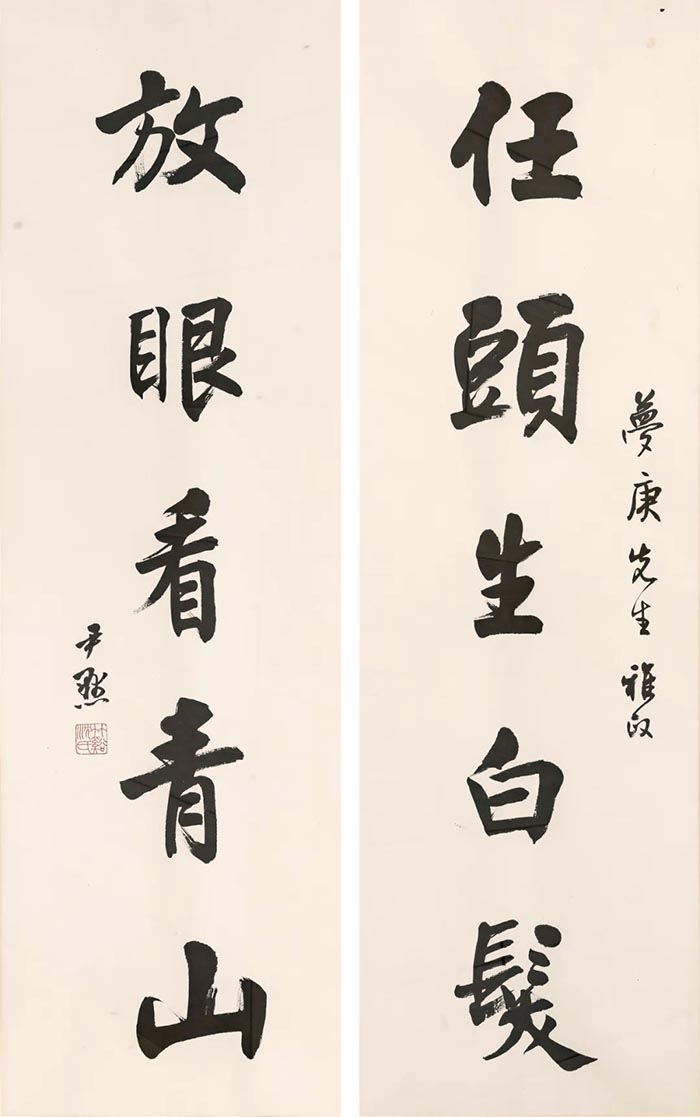 夢庚先生雅政
任頭生白髮
放眼看青山
尹默
竹谿沈氏